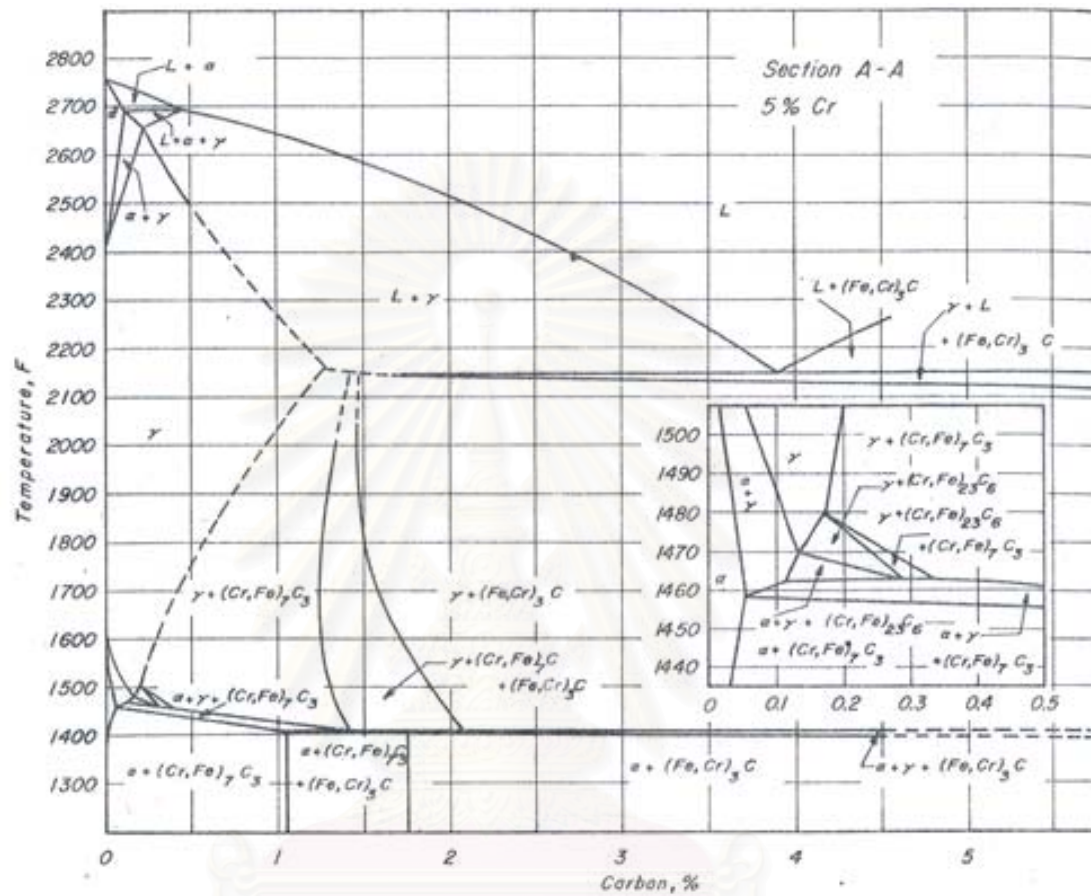 Section A-A
5% Cr
Temperature, F
2800
2700
2600
2500
2400
2300
2200
2100
2000
1900
1800
1700
1600
1500
1400
1300
L + α
L+α+γ
α+γ
L
L + γ
L + (Fe,Cr)₃C
γ + L
+ (Fe,Cr)₃ C
γ
γ+(Cr,Fe)₇C₃
γ+(Fe,Cr)₃ C
γ+(Cr,Fe)₇C
+(Fe,Cr)₃C
α+γ+(Cr,Fe)₇C₃
α+(Cr,Fe)₇ C₃
α+(Cr,Fe)₇C₃
+(Fe,Cr)₃C
α+ (Fe,Cr)₃ C
α+γ + (Fe,Cr)₃ C
1500
1490
1480
1470
1460
1450
1440
α+γ
γ
α
γ+(Cr,Fe)₇C₃
γ+(Cr,Fe)₂₃C₆
γ+(Cr,Fe)₂₃C₆
+(Cr,Fe)₇ C₃
α+γ+ (Cr,Fe)₂₃C₆
α+γ
α+(Cr,Fe)₇ C₃
+(Cr,Fe)₇ C₃
0 0.1 0.2 0.3 0.4 0.5
0 1 2 3 4 5
Carbon, %